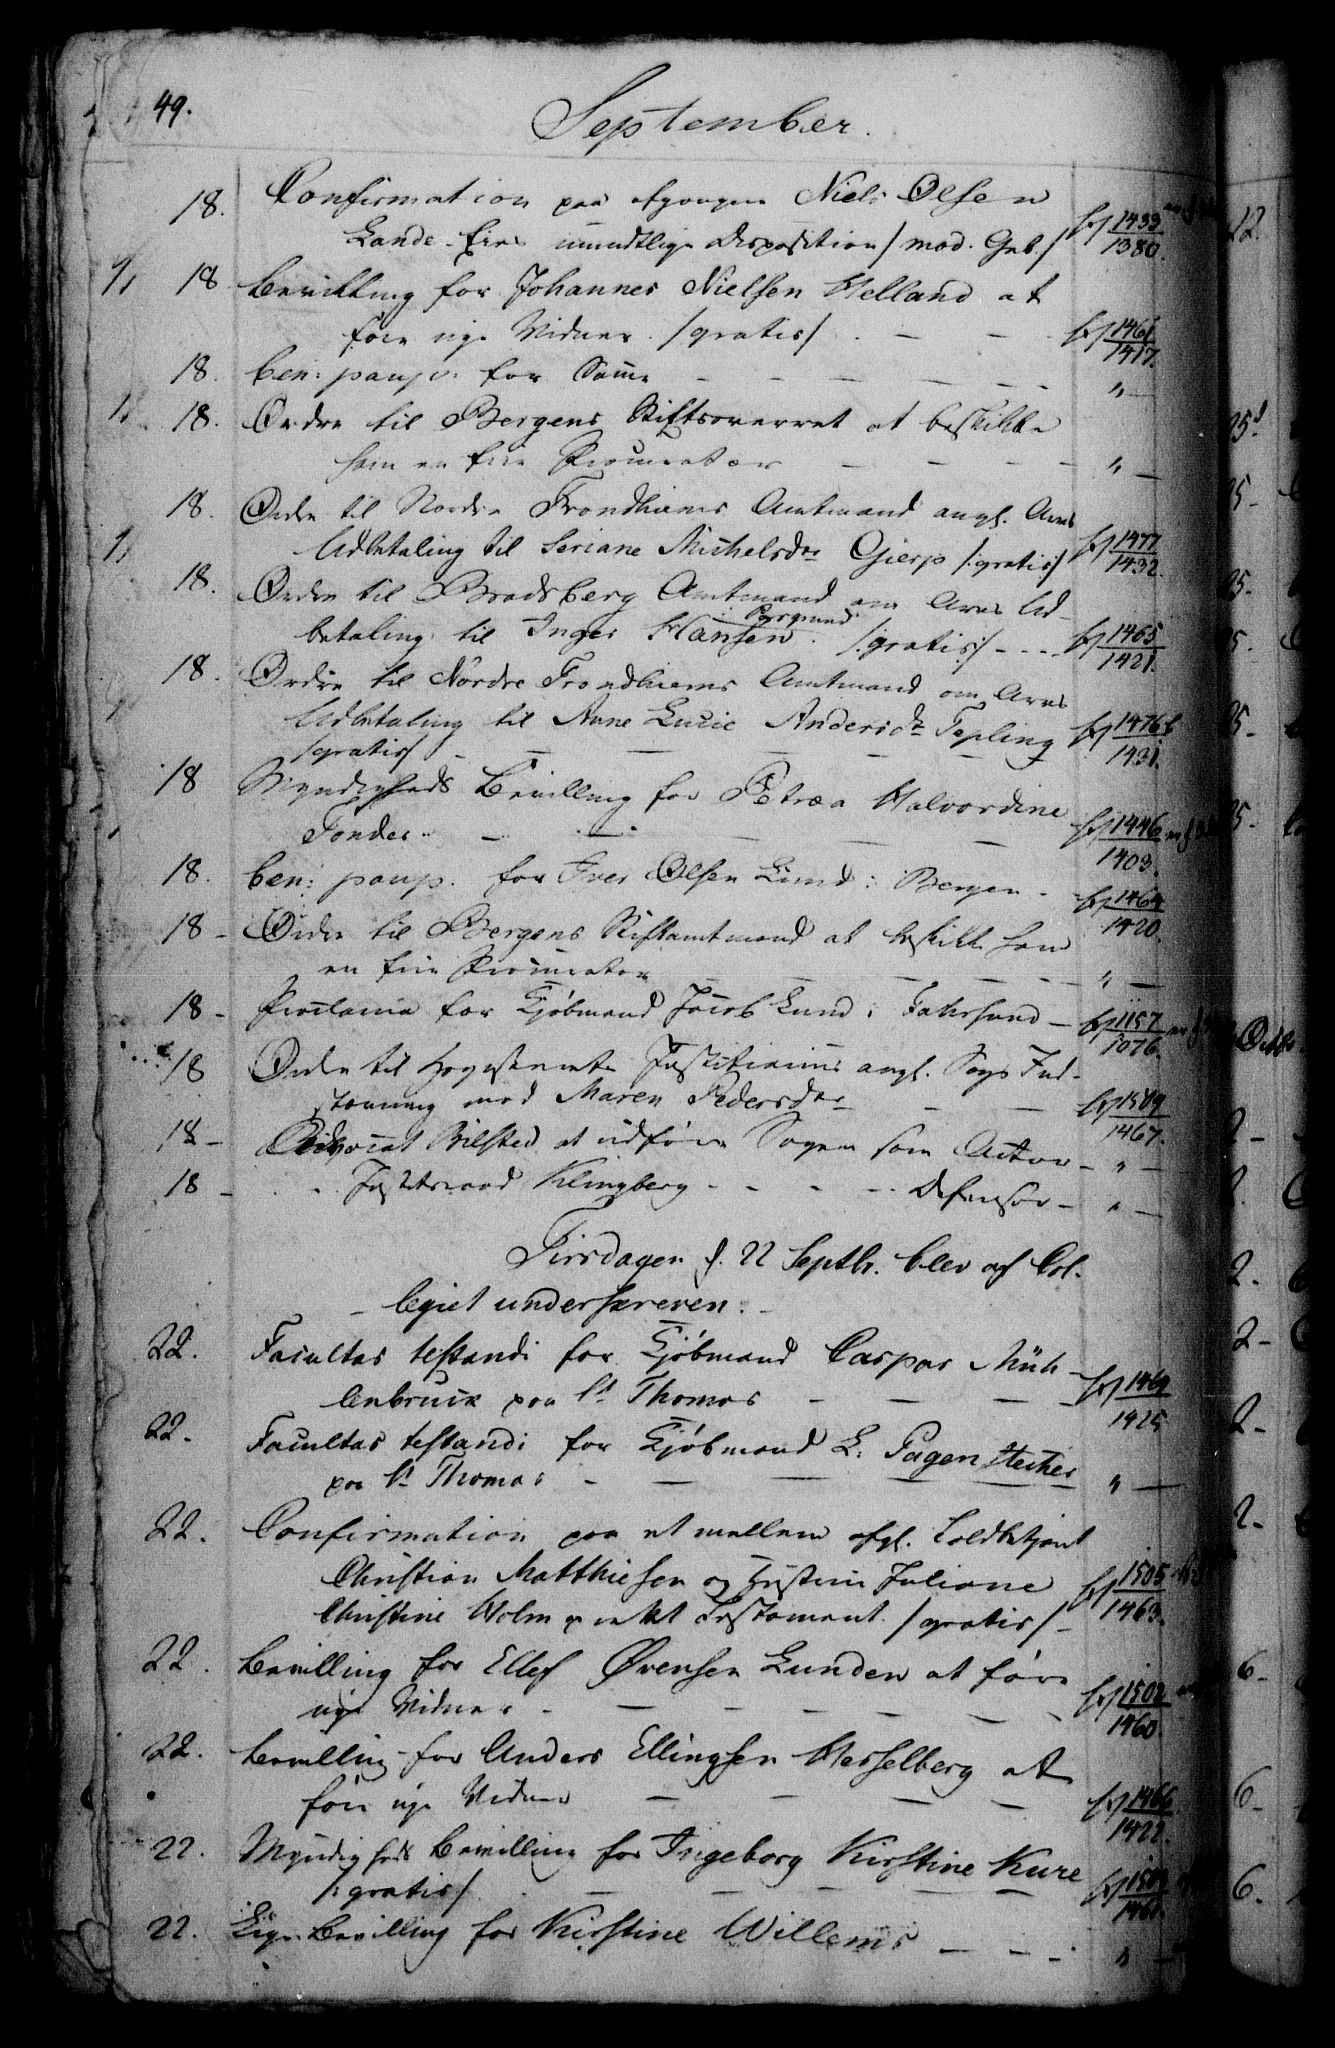 49.
September.
18. Confirmation paa afgangne Niels Olsen
Lande - mundtlige Disposition / mod. Geb. / 1433
1380.
18 Bevilling for Johannes Nielsen Helland at
føre nye Vidner /gratis/ . — — 1461
1417.
18. ben: paup: for Samme — — — — — „ —
18. Ordre til Bergens Stiftsoverret at beskikke
ham en frie Procurator — — — — „ —
18. Ordre til Nordre Trondhiems Amtmand angl. Arvs
Udbetaling til Seriane Michelsdr Gierp /:gratis/ 1477
1432.
18. Ordre til Bradsberg Amtmand om Arvs Ud-
betaling til Inger Hansen : Porsgrund /:gratis/ - - - 1465
1421.
18. Ordre til Nordre Trondhiems Amtmand om Arvs
Udbetaling til Anne Lucie Andersdr Tepling 1476
/gratis/ — — — — 1431.
18 Myndigheds Bevilling for Petræa Halvordine
Fonder — — — — — 1446
1403.
18. ben: paup. for Iver Olsen Lund i Bergen - 1464
1420.
18 - Ordre til Bergens Stiftamtmand at beskikke ham
en frie Procurator — — — — „ —
18 - Proclama for Kjøbmand Jacob Lund i Fahrsund — 1157
1076.
18 Ordre til Høyesterets Justitiarius angl. Sags Ind-
stævning mod Maren Pedersdr — — 1509
1467.
18 - Advocat Bilsted at udføre Sagen som Actor — „ —
18 - - Justitsraad Klingberg - - - - Defensor — „ —
Tirsdagen d. 22 Septbr. blev af Col-
legiet underskreven.
22. Facultas testandi for Kjøbmand Caspar Müh-
lenbruck paa St Thomas — — — 1469
1425
22. Facultas testandi for Kjøbmand L. Pagenstecher
paa St Thomas — — — — „ —
22. Confirmation paa et mellem afgl. Toldbetjent
Christian Matthiesen og Hustrue Juliane 1505
Christine Holm oprettet Testament /gratis/ - 1463.
22. Bevilling for Ellef Øvensen Lunden at føre
nye Vidner - — — — — 1502
1460.
22. Bevilling for Anders Ellingsen Hesselberg at
føre nye Vidner — — — — 1466
1422.
22. Myndigheds Bevilling for Ingeborg Kirstine Kure
/:gratis/ . — — — — 1461.
22. Lige Bevilling for Kirstine Willems — — - „ —